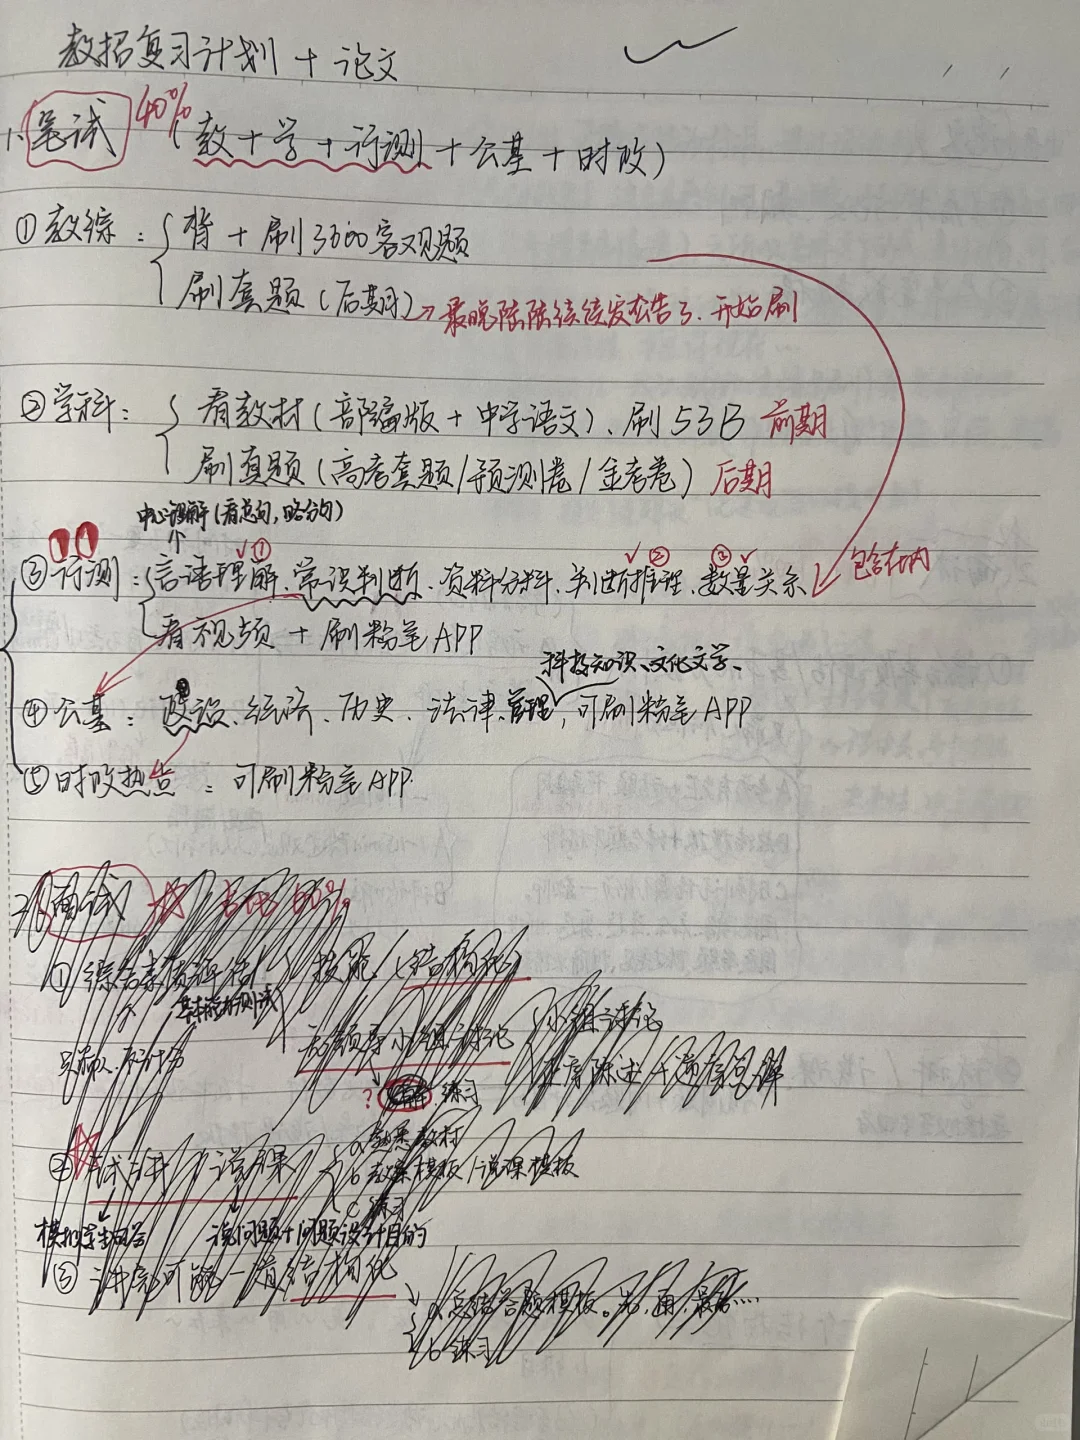 教招复习计划 + 论文
1. 笔试 40% (教+学+行测+公基+时政)
①教综：背 + 刷3600客观题
刷套题(后期)→最晚陆陆续续发公告了、开始刷
②学科：看教材(部编版 + 中学语文)、刷53B 前期
刷真题(高考套题/预测卷/金考卷) 后期
中心理解(看总句,略分句)
③行测：言语理解①、常识判断、资料分析、判断推理②、数量关系③ 包含在内
看视频 + 刷粉笔APP
科技知识、文化文学、
④公基：政治、经济、历史、法律、管理,可刷粉笔APP
⑤时政热点：可刷粉笔APP
2. 面试 占比 60%
①综合素质评估 技能 (结构化)
基本能力测试
只录入、不计分
无领导小组讨论 小组讨论
顺序陈述 +
? 练习
②试讲 / 说课 a 熟悉教材
b 教案模板/说课模板
c 练习
模拟学生回答 说问题+问题设计目的
③讲完可能一看结构化
a.总结答题模板。先,再,最后…
b 练习